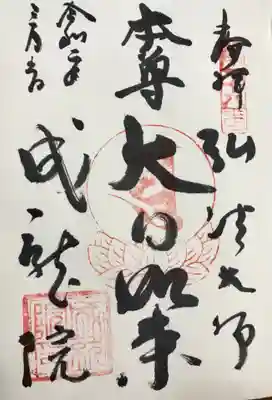 奉拝
弘法大師
本尊
大日如来
令和二年
成就院